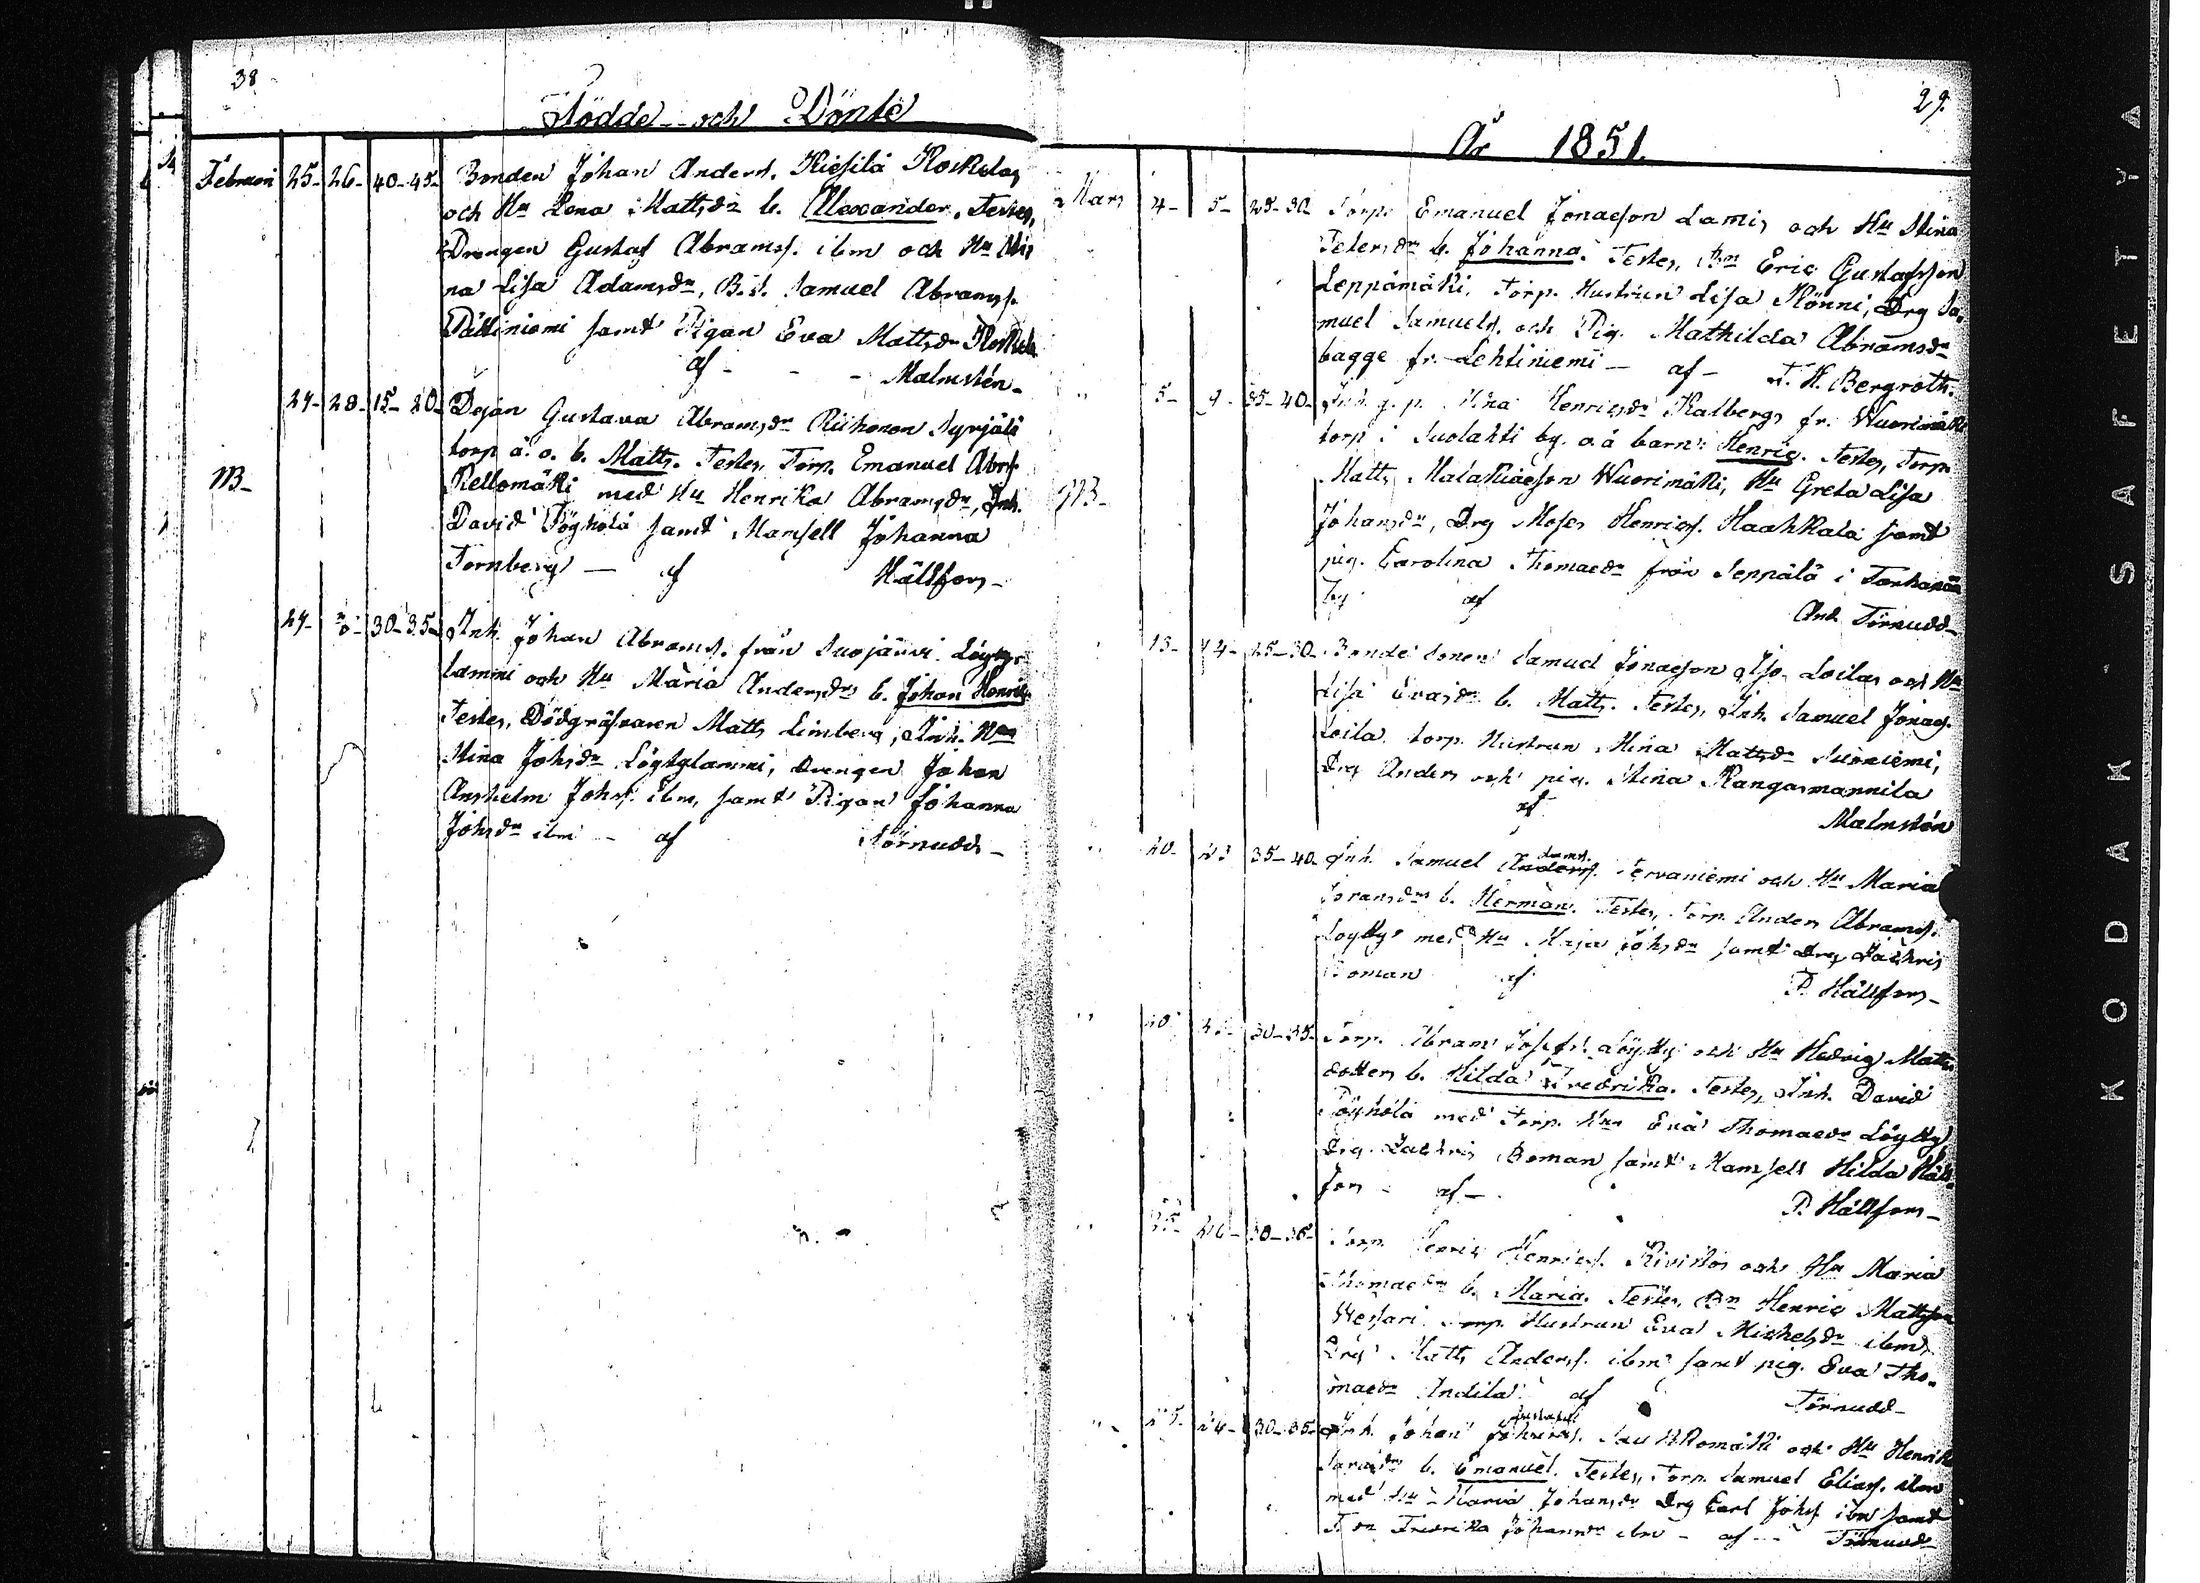 38
Födde och Döpte
Februari 25- 26- 40-45- Bonden Johan Anders. Hiesilä Koskelas
och Hu Lena Mattsdr b. Alexander. Testes,
Drengen Gustaf Abramss. ibm och Hu
na Lisa Adamsdr, B.S. Samuel Abramss.
Pättiniemi samt Pigan Eva Mattsdr Koskela
af - - - Malmstén-
27- 28- 15-20- Dejan Gustava Abramsdr Riihonen Syrjälä
torp ä. o. b. Matts. Testes, Torp. Emanuel Abrss.
NB- Kellomäki med Hu Henrika Abramsdr, Inh.
David Pöyhölä samt Mamsell Johanna
Tornberg — af Hällfors-
27- 30-35- Inh. Johan Abramss. från Suojärvi Löytys-
lammi och Hu Maria Andersdr b. Johan Henric
Testes, Dödgräfvaren Matts Limberg, Inh. Hu
Stina Johsdr Löytylammi, drengen Johan
Anshelm Johss. ibm, samt Pigan Johanna
Johsdr ibm - af Törnudd-
29.
År 1851.
Mars 4- 5- 25-30- Torp. Emanuel Jonaeson Lamis och Hu Stina
Petersdr b. Johanna. Testes, Bn Eric Gustafsson
Leppämäki, Torp. Hustrun Lisa Könni, Drg Sa-
muel Samuels. och Pig. Mathilda Abramsdr
bagge fr. Lehtiniemi — af — F. H. Bergroth.
" 5- 9- 35-40- Inh. g. p. Stina Henricsdr Kalbergs fr. Wuorimäki
torp i Suolahti by. o.ä barn: Henric. Testes, Torp.
Matts Malakiaeson Wuorimäki, Hu Greta Lisa
NB- Johansdr, Drg Moses Henricss. Haahkala samt
pig. Carolina Thomaedr från Seppälä i Tarhapää
by af And. Törnudd-
13- 14- 25-30- Bonde Sonen Samuel Jonaeson Iso Loilas och Hu
Lisa Evasdr b. Matts. Testes, Inh. Samuel Jonaes.
Loila. torp. Hustrun Stina Mattsdr Suoniemi,
Drg Anders och pig. Stina Kangasmannila
af Malmstén
20- 23 35-40- Inh. Samuel Anderss. Tervaniemi och Hu Maria
b. Herman. Testes, Torp. Anders Abramss.
Löytty med Hu Maja Johsdr samt Drg Zachris
Boman af P. Hällfors-
" 20 30-35- Torp. Abram Josefs. Löytty och Hu Hedvig Matts
dotter b. Hilda Fredrika. Testes, Inh. David
Pöyhölä med Torp. Hu Eva Thomaedr Löytty
Drg. Zachris Boman samt Mamsell Hilda Häll-
fors - af - P. Hällfors-
" 25- 26- 30-35- Torp. Henric Henricss. Kivistös och Hu Maria
Thomaedr b. Maria. Testes, Bn Henric Mattsson
Wessari Torp. Hustrun Eva Michelsdr ibm,
Drg Matts Anderss. ibm samt pig. Eva Tho-
maedr Andila af Törnudd-
" 25- 24- 30-35- Inh. Johan Saukkomäki och Hu Henrik
b. Emanuel. Testes, Torp. Samuel Eliass. ibm
med Hu Maria Johansdr Drg Carl Johss ibm samt
Fredrika Johansdr ibm - af - Törnudd-
KODAK SAFETY A